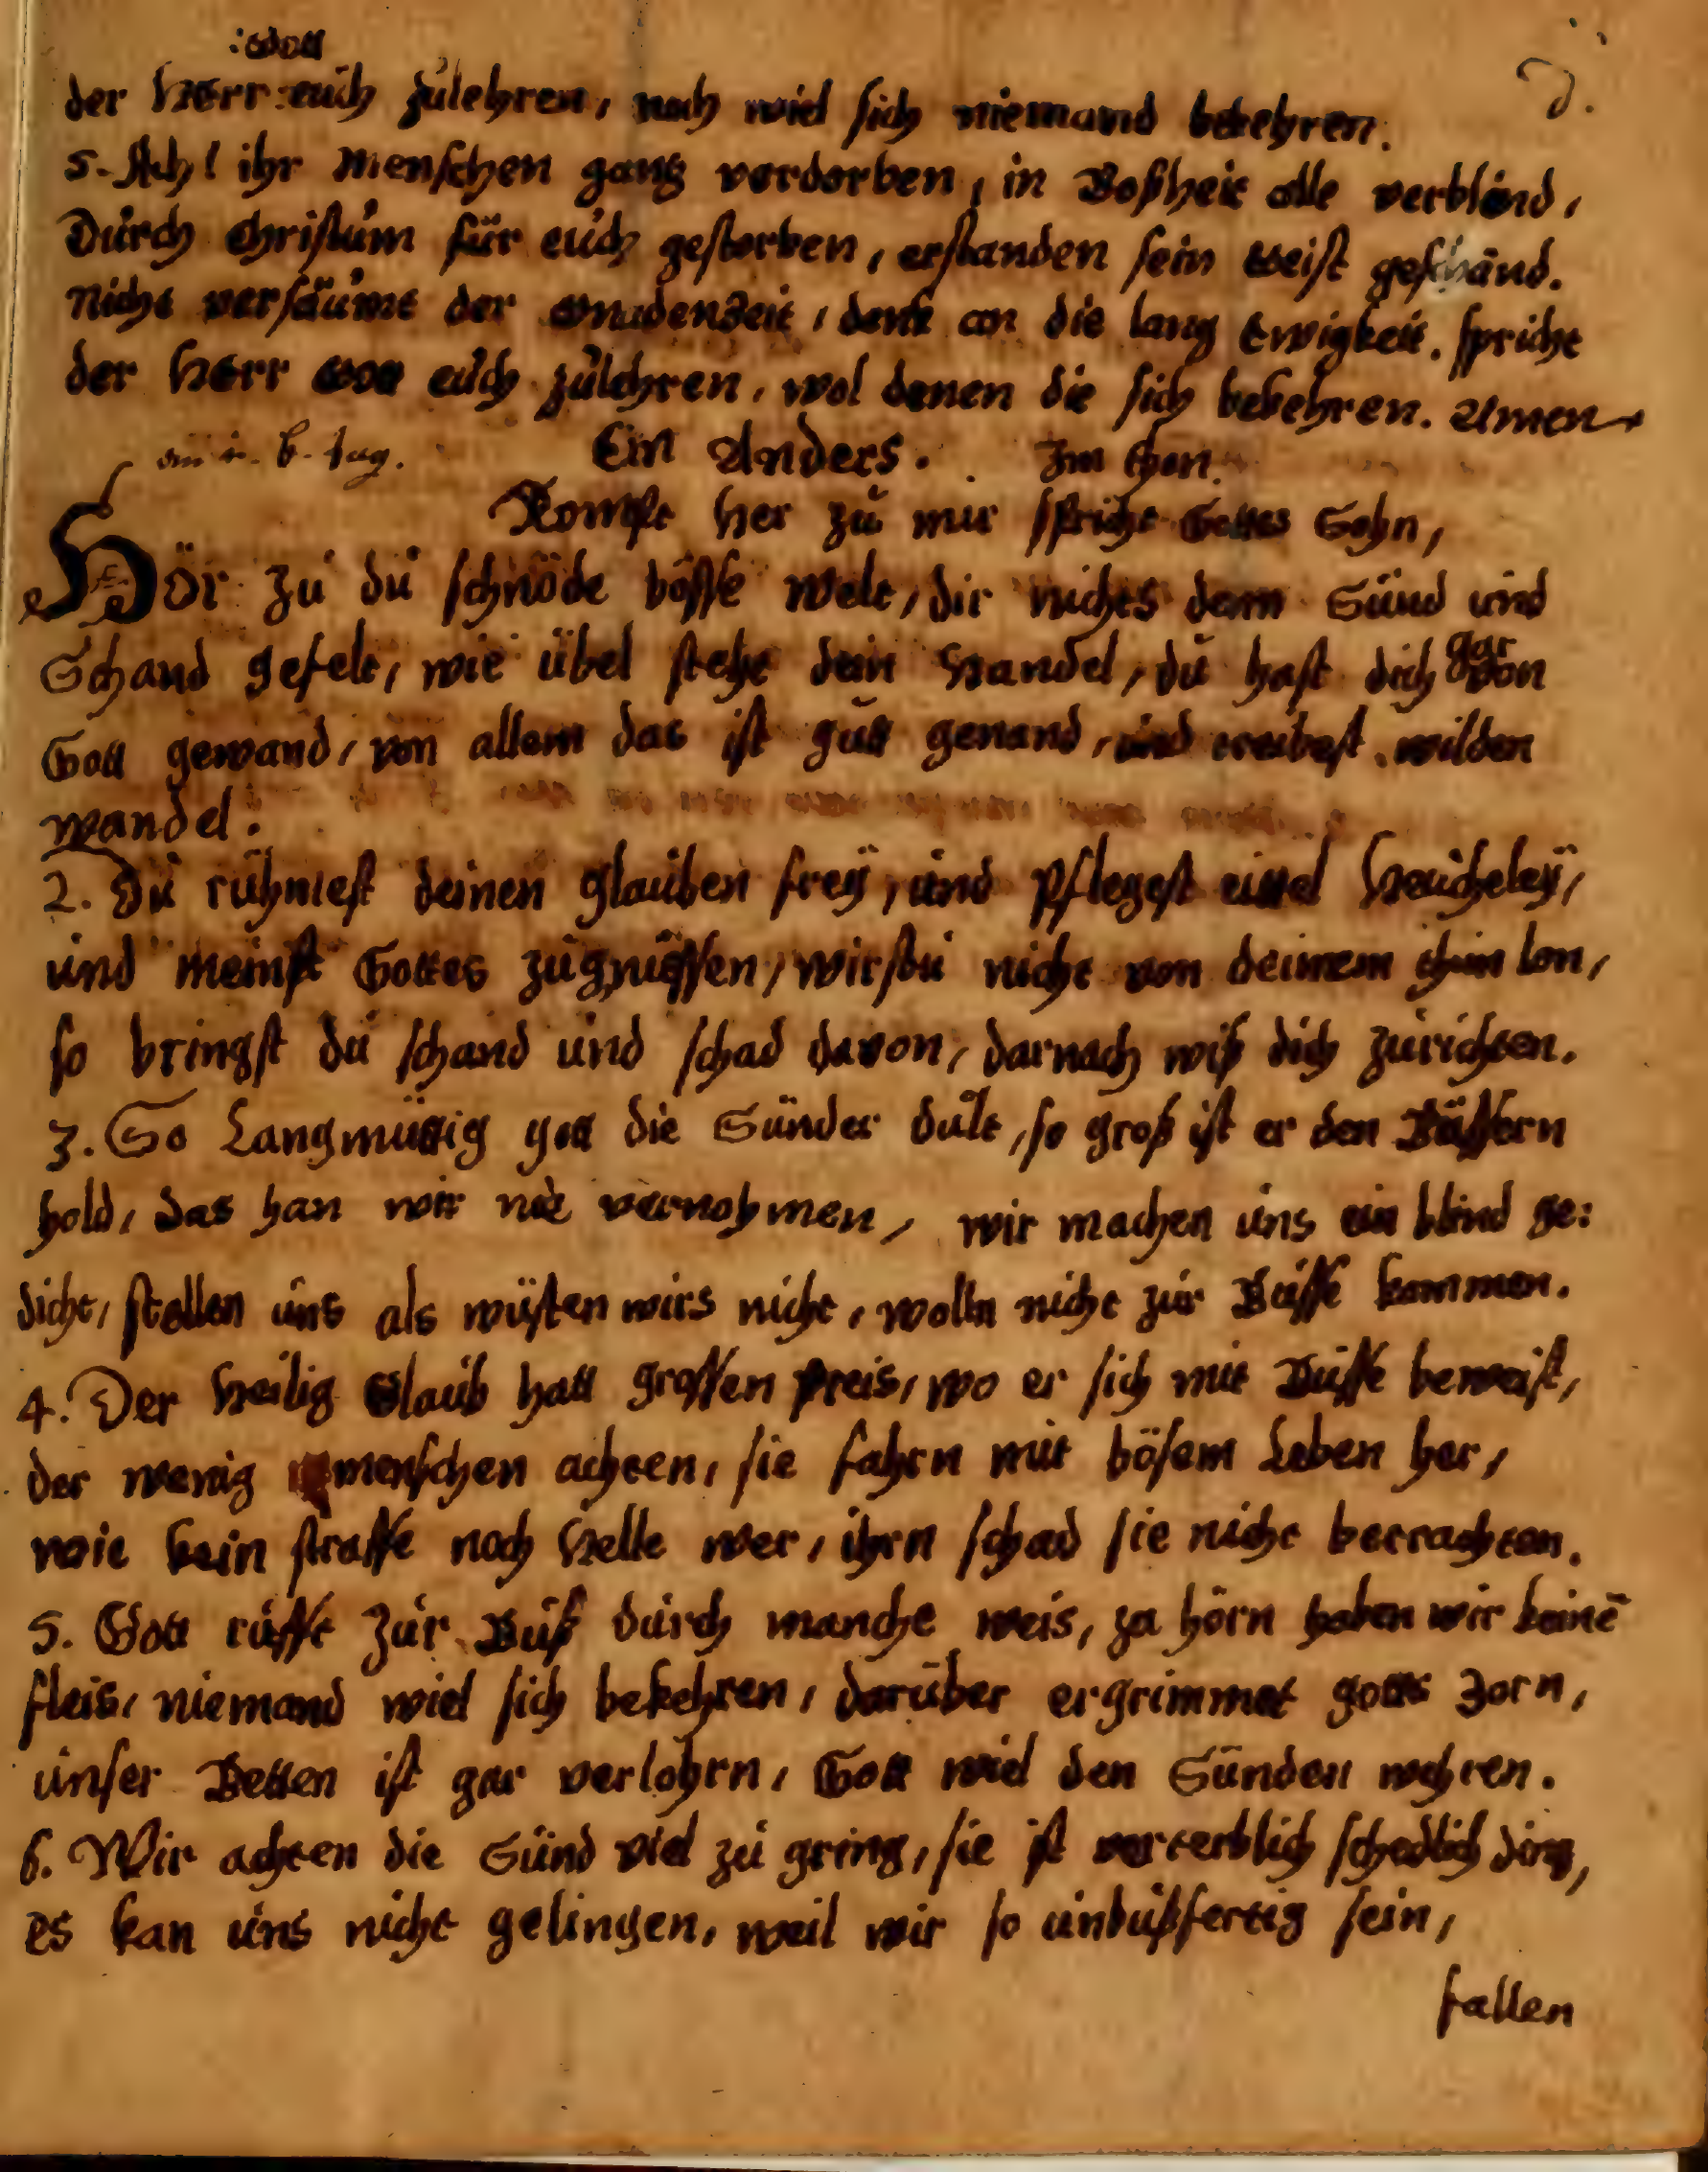 :Gott
der Herr: euch zulehren, noch wiel sich niemand bekehren.
5. Ach! ihr Menschen gantz verdorben, in Boßheit alle verbländ,
Durch Christum für euch gestorben, erstanden sein Geist geschänd.
Nicht versäumt der Gnadenzeit, denk an die lang Ewigkeit. spricht
der Herr Gott euch zulehren, wol denen die sich bekehren. Amen
Ein Anders. Im thon.
Kompt her zu mir spricht Gottes Sohn,
Hör zu du schnöde bösse Welt, dir nichts dann Sünd und
Schand gefelt, wie übel steht dein Handel, du hast dich gar von
Gott gewand, von allem das ist gutt genand, und treibest wilden
wandel.
2. Du rühmest deinen glauben frey, und pflegest eittel Heucheley,
und meinst Gottes zugnüssen, wirstu nicht von deinem thun lon,
so bringst du schand und schad davon, darnach wiß dich zurichten.
3. So Langmüttig gott die Sünder dult, so groß ist er den Büssern
hold, das han wir nie vernohmen, wir machen uns ein blind ge:
dicht, stellen uns als wüsten wirs nicht, wolln nicht zur Busse kommen.
4. Der Heilig Glaub hatt grossen preis, wo er sich mit Busse beweist,
der wenig menschen achten, sie fahrn mit bösem Leben her,
wie kein straffe noch Helle wer, ihrn schad sie nicht betrachten.
5. Gott rufft zur Buß durch manche weis, za hörn haben wir keinē
fleis, niemand wiel sich bekehren, darüber ergrimmet gotts zorn,
unser Betten ist gar verlohrn, Gott wiel den Sünden wehren.
6. Wir achten die Sünd viel zu gring, sie ist verterblich schedlich ding,
es kan uns nicht gelingen, weil wir so unbußfertig sein,
fallen